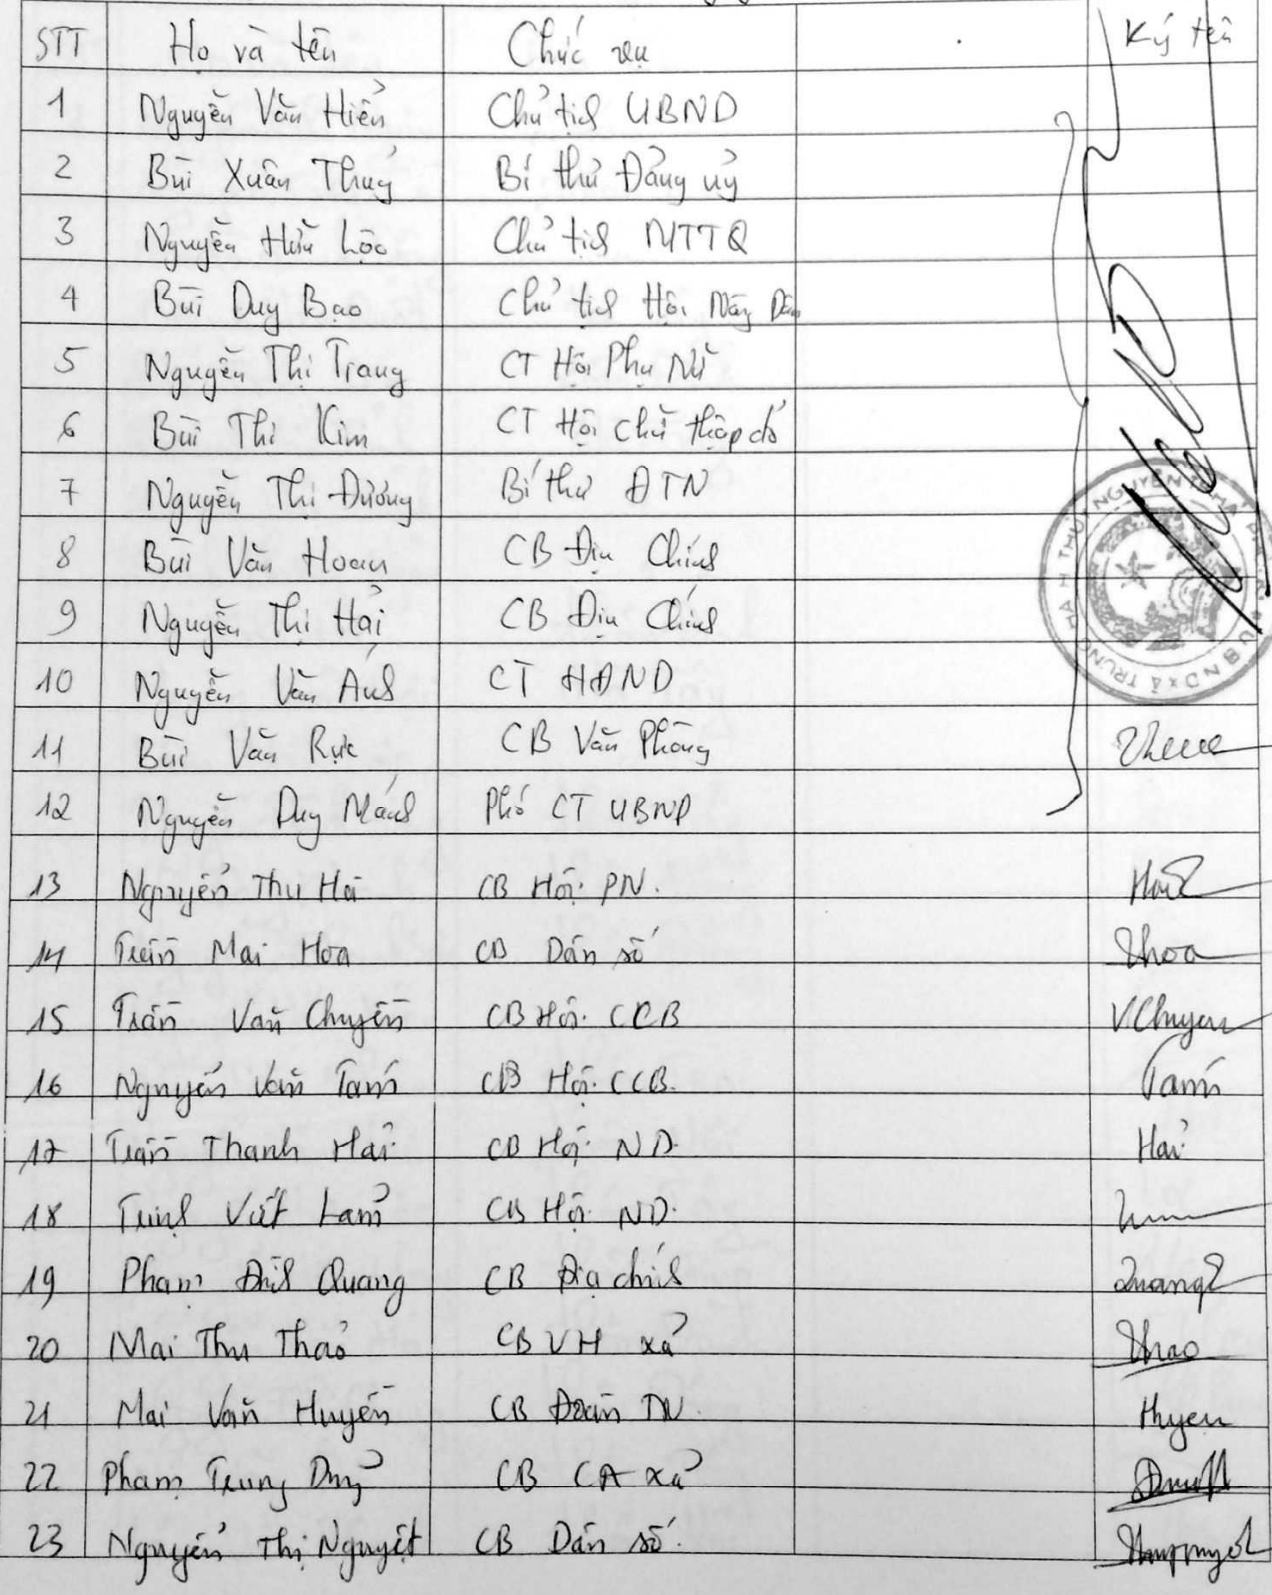 STT Họ và tên Chức vụ Ký tên
1 Nguyễn Văn Hiển Chủ tịch UBND
2 Bùi Xuân Thuỷ Bí thư Đảng uỷ
3 Nguyễn Hữu Lộc Chủ tịch MTTQ
4 Bùi Duy Bạo Chủ tịch Hội Nông Dân
5 Nguyễn Thị Trang CT Hội Phụ Nữ
6 Bùi Thị Kim CT Hội chữ thập đỏ
7 Nguyễn Thị Đương Bí thư ĐTN
8 Bùi Văn Hoan CB Địa Chính
9 Nguyễn Thị Hải CB Địa Chính
10 Nguyễn Văn Ánh CT HĐND
11 Bùi Văn Rực CB Văn Phòng
12 Nguyễn Duy Mánh Phó CT UBND
13 Nguyễn Thu Hà CB Hội PN.
14 Trần Mai Hoa CB Dân số Hoa
15 Trần Văn Chuyền CB Hội CCB VChuyen
16 Nguyễn Văn Tám CB Hội CCB. Tám
17 Trần Thanh Hải CB Hội ND. Hải
18 Trịnh Viết Lam CB Hội ND.
19 Phạm Đình Quang CB Địa chính Quang
20 Mai Thu Thảo CB VH xã Thao
21 Mai Văn Huyền CB Đoàn TN. Huyen
22 Phạm Trung Duy CB CA xã
23 Nguyễn Thị Nguyệt CB Dân số.